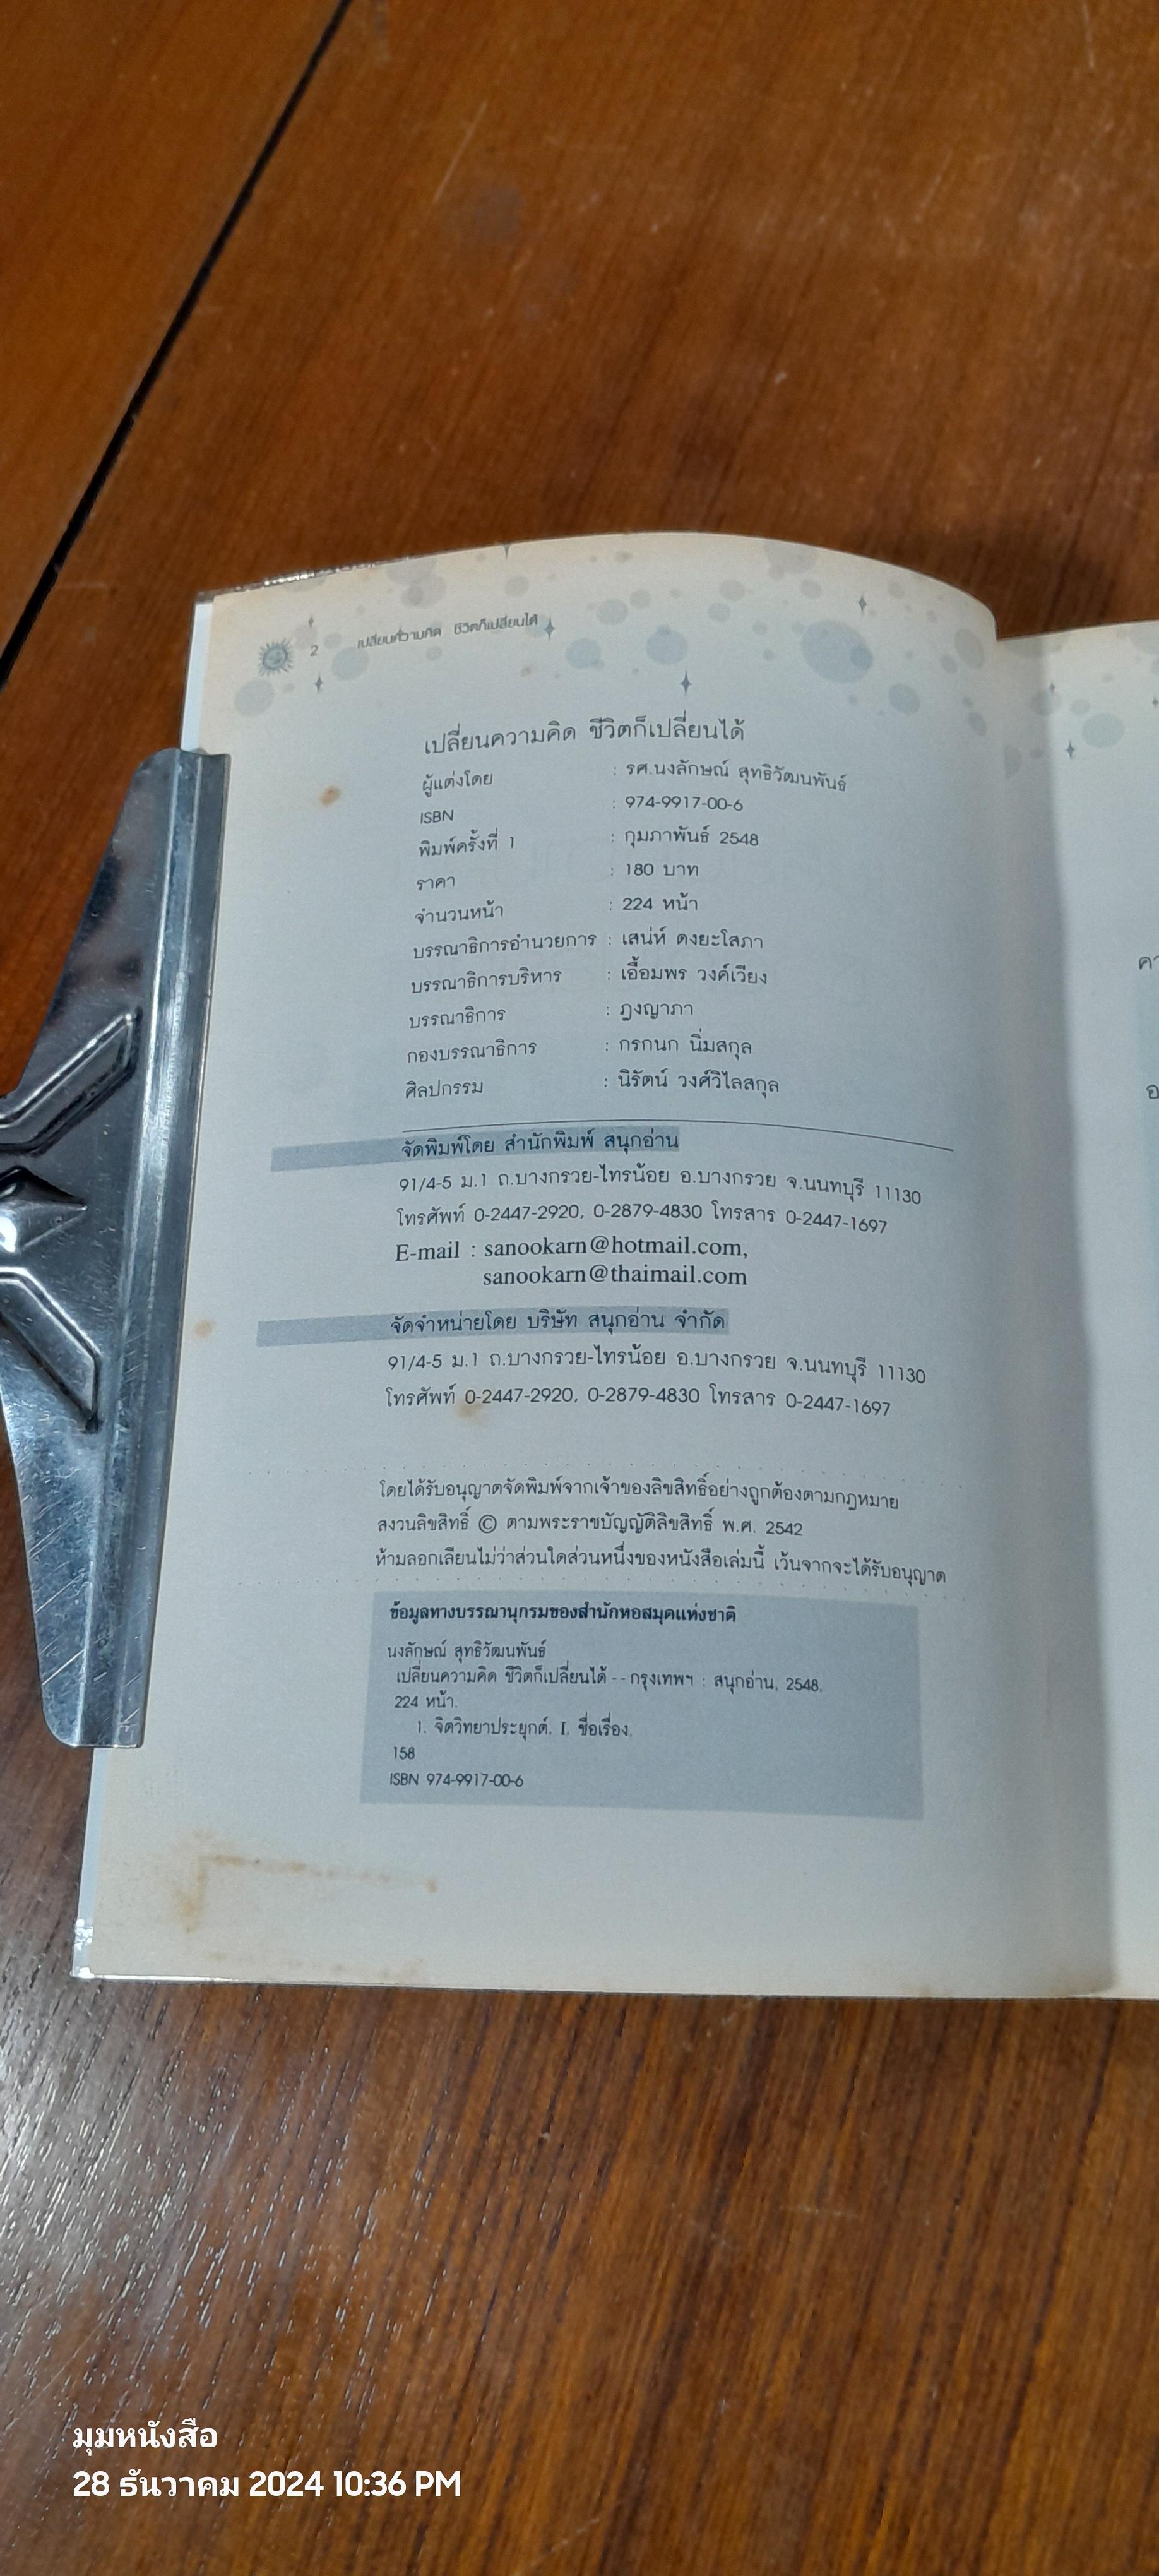 2 เปลี่ยนความคิด ชีวิตก็เปลี่ยนได้
เปลี่ยนความคิด ชีวิตก็เปลี่ยนได้
ผู้แต่งโดย : รศ.นงลักษณ์ สุทธิวัฒนพันธ์
ISBN : 974-9917-00-6
พิมพ์ครั้งที่ 1 : กุมภาพันธ์ 2548
ราคา : 180 บาท
จำนวนหน้า : 224 หน้า
บรรณาธิการอำนวยการ : เสน่ห์ ดงยะโสภา
บรรณาธิการบริหาร : เอื้อมพร วงค์เวียง
บรรณาธิการ : ฎงญาภา
กองบรรณาธิการ : กรกนก นิ่มสกุล
ศิลปกรรม : นิรัตน์ วงศ์วิไลสกุล
จัดพิมพ์โดย สำนักพิมพ์ สนุกอ่าน
91/4-5 ม.1 ถ.บางกรวย-ไทรน้อย อ.บางกรวย จ.นนทบุรี 11130
โทรศัพท์ 0-2447-2920, 0-2879-4830 โทรสาร 0-2447-1697
E-mail : sanookarn@hotmail.com,
sanookarn@thaimail.com
จัดจำหน่ายโดย บริษัท สนุกอ่าน จำกัด
91/4-5 ม.1 ถ.บางกรวย-ไทรน้อย อ.บางกรวย จ.นนทบุรี 11130
โทรศัพท์ 0-2447-2920, 0-2879-4830 โทรสาร 0-2447-1697
โดยได้รับอนุญาตจัดพิมพ์จากเจ้าของลิขสิทธิ์อย่างถูกต้องตามกฎหมาย
สงวนลิขสิทธิ์ © ตามพระราชบัญญัติลิขสิทธิ์ พ.ศ. 2542
ห้ามลอกเลียนไม่ว่าส่วนใดส่วนหนึ่งของหนังสือเล่มนี้ เว้นจากจะได้รับอนุญาต
ข้อมูลทางบรรณานุกรมของสำนักหอสมุดแห่งชาติ
นงลักษณ์ สุทธิวัฒนพันธ์
เปลี่ยนความคิด ชีวิตก็เปลี่ยนได้ - - กรุงเทพฯ : สนุกอ่าน, 2548.
224 หน้า.
1. จิตวิทยาประยุกต์. I. ชื่อเรื่อง.
158
ISBN 974-9917-00-6
มุมหนังสือ
28 ธันวาคม 2024 10:36 PM